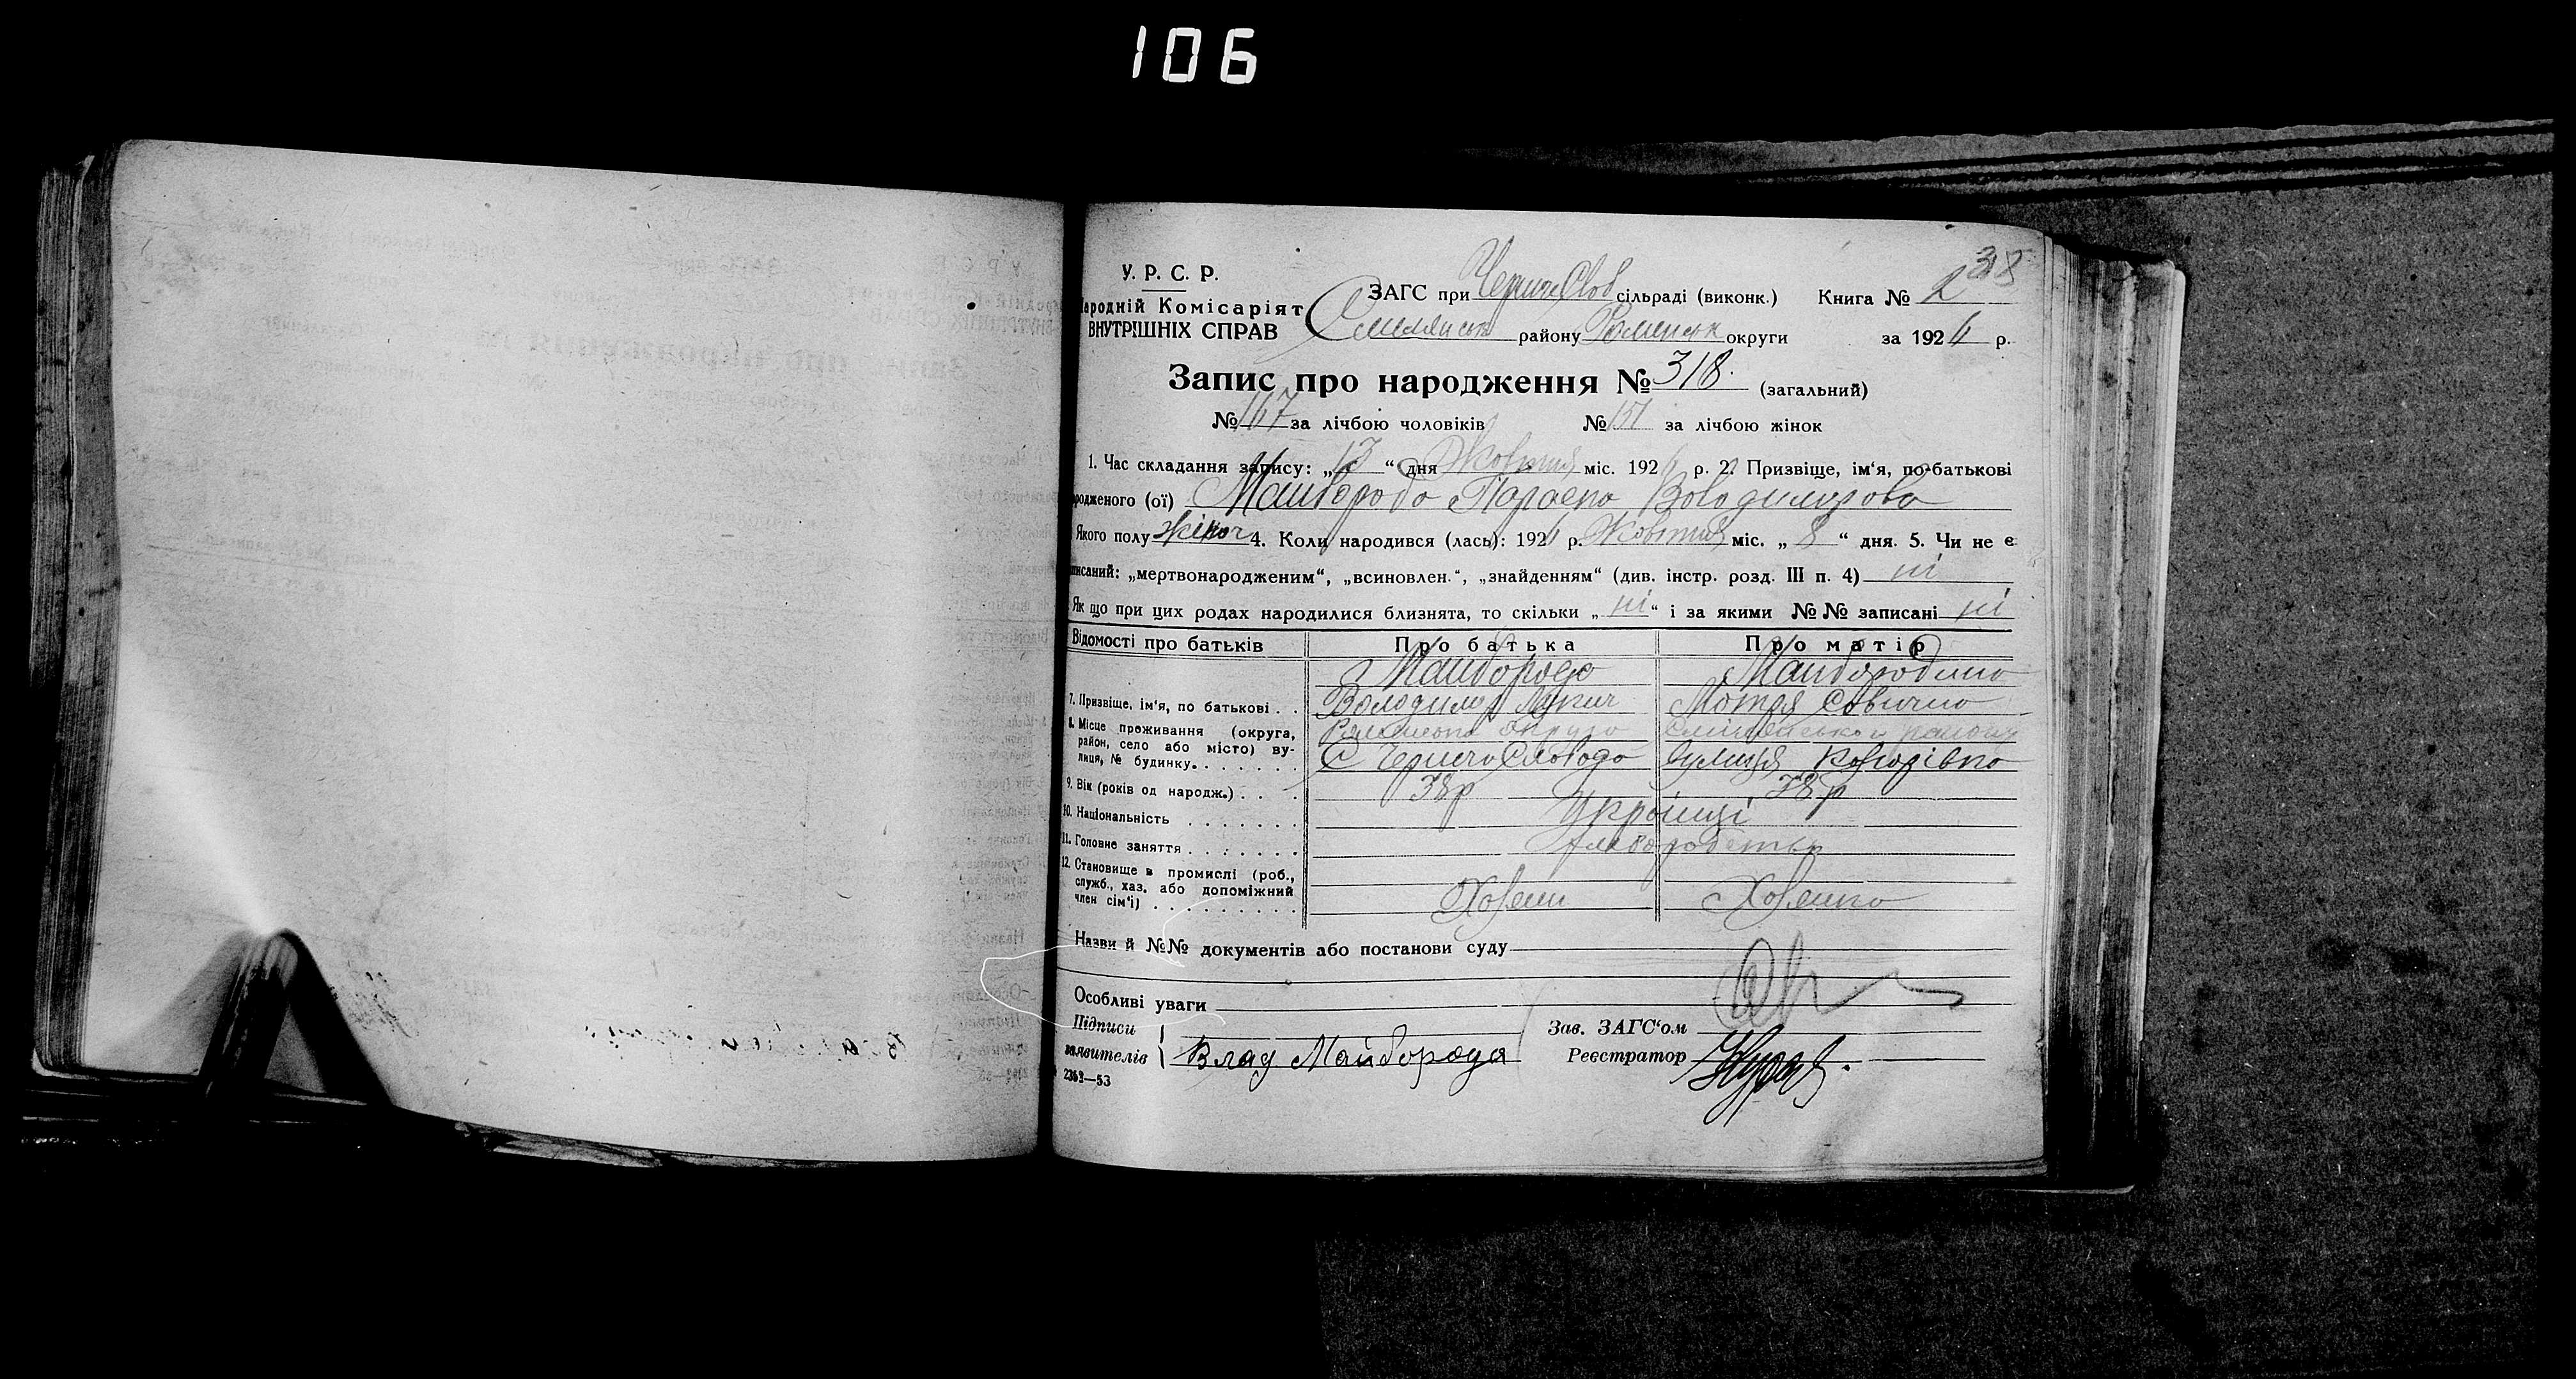 106
318
У. Р. С. Р.
Народній Комісаріят
ВНУТРІШНІХ СПРАВ
ЗАГС при Черн. Слоб сільраді (виконк.) Книга № 2
району Роменськ округи за 192 р.
Запис про народження № 318. (загальний)
№ 167 за лічбою чоловіків № 151 за лічбою жінок
1. Час складання запису: „13“ дня Жовтня міс. 192 р. 2. Призвіще, ім‘я, по-батькові
родженого (ої) Майборода Параска Володимирова
Якого полу жіноч 4. Коли народився (лась): 192 р. Жовтня міс. „8“ дня. 5. Чи не є
писаний: „мертвонародженим“, „всиновлен.“, „знайденням“ (див. інстр. розд. III п. 4) ні
Як що при цих родах народилися близнята, то скільки „ні“ і за якими №№ записані ні
Відомості про батьків Про батька Про матір
Майборода Майбородина
7. Призвіще, ім‘я, по батькові . . Володимир Мотря Савична
8. Місце проживання (округа, район, село або місто) ву- лиця, № будинку. Роменська округа району
С Чернеча Слобода вулиця
9. Вік (років од народж.) . . . 38р 38р
10. Національність Українці
11. Головне заняття Хлеборобство
12. Становище в промислі (роб., служб., хаз. або допоміжний член сім‘ї) Хозяин Хозяйка
Назви й №№ документів або постанови суду
Особливі уваги
Підписи
заявителів Влад Майборода
Зав. ЗАГС‘ом
Реєстратор
2363—53